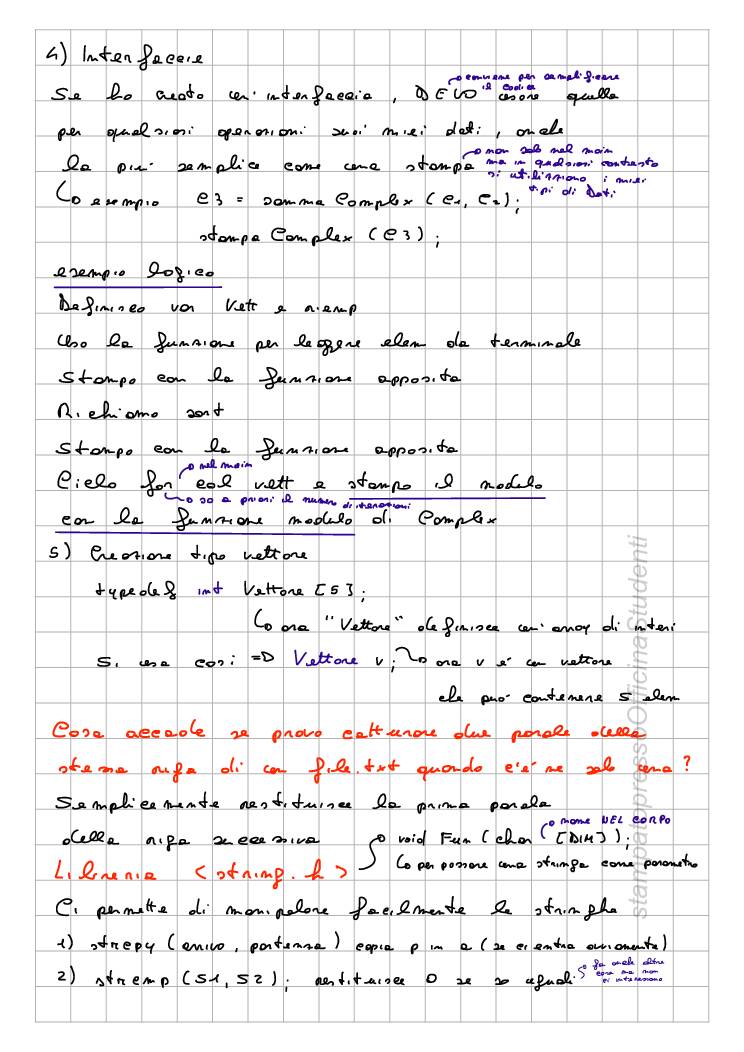 4) Interfaccie
→ conviene per semplificare il codice
Se ho creato un'interfaccia, DEVO usare quella
per qualsiasi operazioni sui miei dati, anche
la piu' semplice come una stampa
→ non solo nel main
ma in qualsiasi contesto
si utilizzano i miei
tipi di Dati
↳ esempio C3 = somma Complex (C1, C2);
stampa Complex (C3);
esempio logico
Definisco var Vett e riemp
Uso la funzione per leggere elem da terminale
Stampo con la funzione apposita
Richiamo sort
Stampo con la funzione apposita
→ nel main
Ciclo for col vett e stampo il modulo
→ so a priori il numero di iterazioni
con la funzione modulo di Complex
5) Creazione tipo vettore
typedef int Vettore [5];
↳ ora "Vettore" definisce un'array di interi
Si usa cosi => Vettore v; → ora v é un vettore
che puó contenere 5 elem
Cosa accade se provo catturare due parole della
stessa riga di un file.txt quando c'é ne solo una?
Semplicemente restituisce la prima parola
→ nome NEL CORPO
della riga successiva → void Fun (char [DIM]);
Libreria <string.h> ↳ per passare una stringa come parametro
Ci permette di manipolare facilmente le stringhe
1) strcpy (arrivo, partenza) copia p in a (se ci entra ovviamente)
2) strcmp (S1, S2); restituisce 0 se so uguali → fa anche altre
cose ma non
ci interessano
stampatopressoOfficinaStudenti